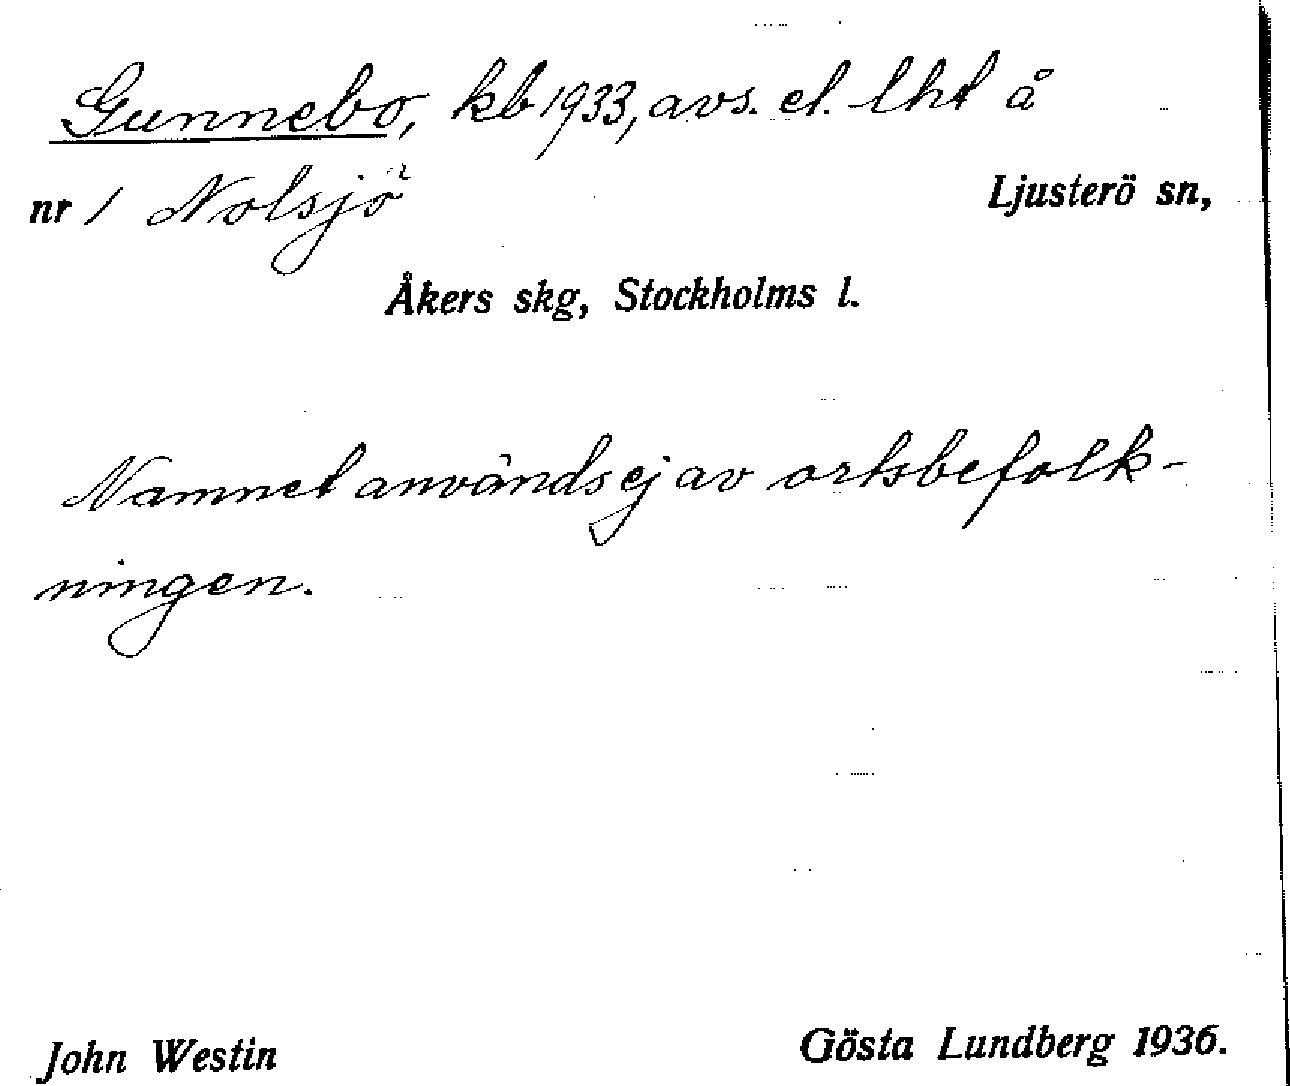 Gunnebo, kb 1933, avs. el. lht å
nr 1 Nolsjö Ljusterö sn,
Åkers skg, Stockholms l.
Namnet används ej av ortsbefolk-
ningen.
John Westin Gösta Lundberg 1936.